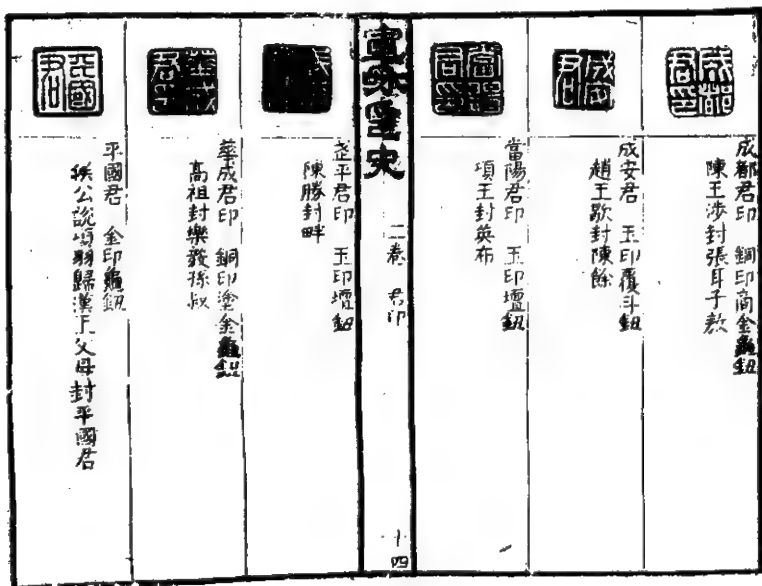 成都君印
成都君印 銅印商金龜鈕
陳王涉封張耳子敖
成安君
成安君 玉印覆斗鈕
趙王歇封陳餘
當陽君印
當陽君印 玉印壇鈕
項王封英布
宣和璽史 二卷 君印 十四
平君印 玉印壇鈕
陳勝封畔
華成君印
華成君印 銅印塗金龜鈕
高祖封樂毅孫叔
平國君
平國君 金印龜鈕
候公說項羽歸漢王父母封平國君